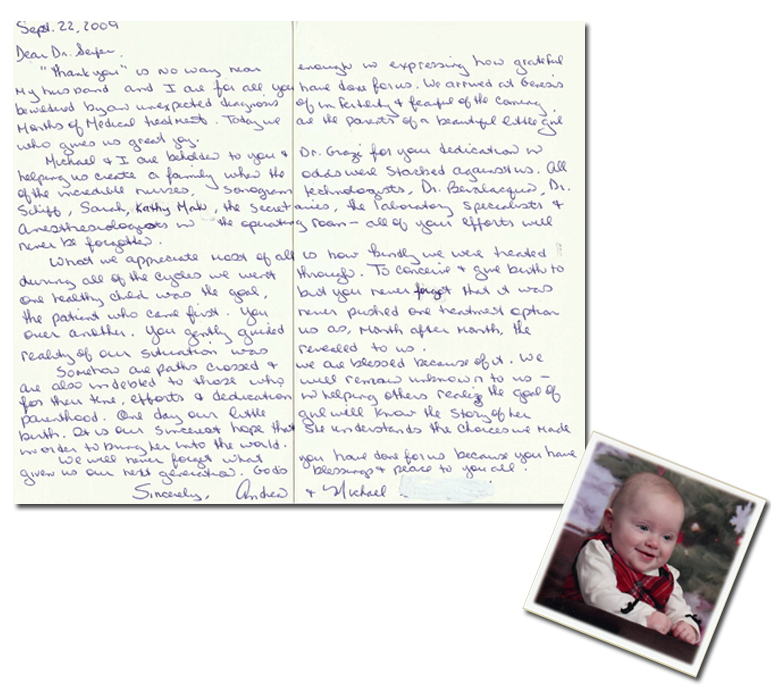 Sept. 22, 2009
Dear Dr. Seifer,
"Thank you" is no way near enough in expressing how grateful
my husband and I are for all you have done for us. We arrived at Genesis
bewildered by an unexpected diagnosis of infertility & fearful of the coming
months of medical treatment. Today we are the parents of a beautiful little girl
who gives us great joy.
Michael & I are beholden to you & Dr. Grazi for your dedication in
helping us create a family when the odds were stacked against us. All
of the incredible nurses, sonogram technologists, Dr. Bevilacqua, Dr.
Schiff, Sarah, Kathy , the secretaries, the laboratory specialists &
Anesthesiologists in the operating room - all of your efforts will
never be forgotten.
What we appreciate most of all is how kindly we were treated
during all of the cycles we went through. To conceive & give birth to
one healthy child was the goal, but you never forgot that it was
the patient who came first. You never pushed one treatment option
over another. You gently guided us as, month after month, the
reality of our situation was revealed to us.
Somehow are paths crossed & we are blessed because of it. We
are also indebted to those who will remain unknown to us -
for their time, efforts & dedication in helping others realize the goal of
parenthood. One day our little girl will know the story of her
birth. It is our sincerest hope that she understands the choices we made
in order to bring her into the world.
We will never forget what you have done for us because you have
given us our next generation. God's blessings & peace to you all.
Sincerely, Andrea & Michael